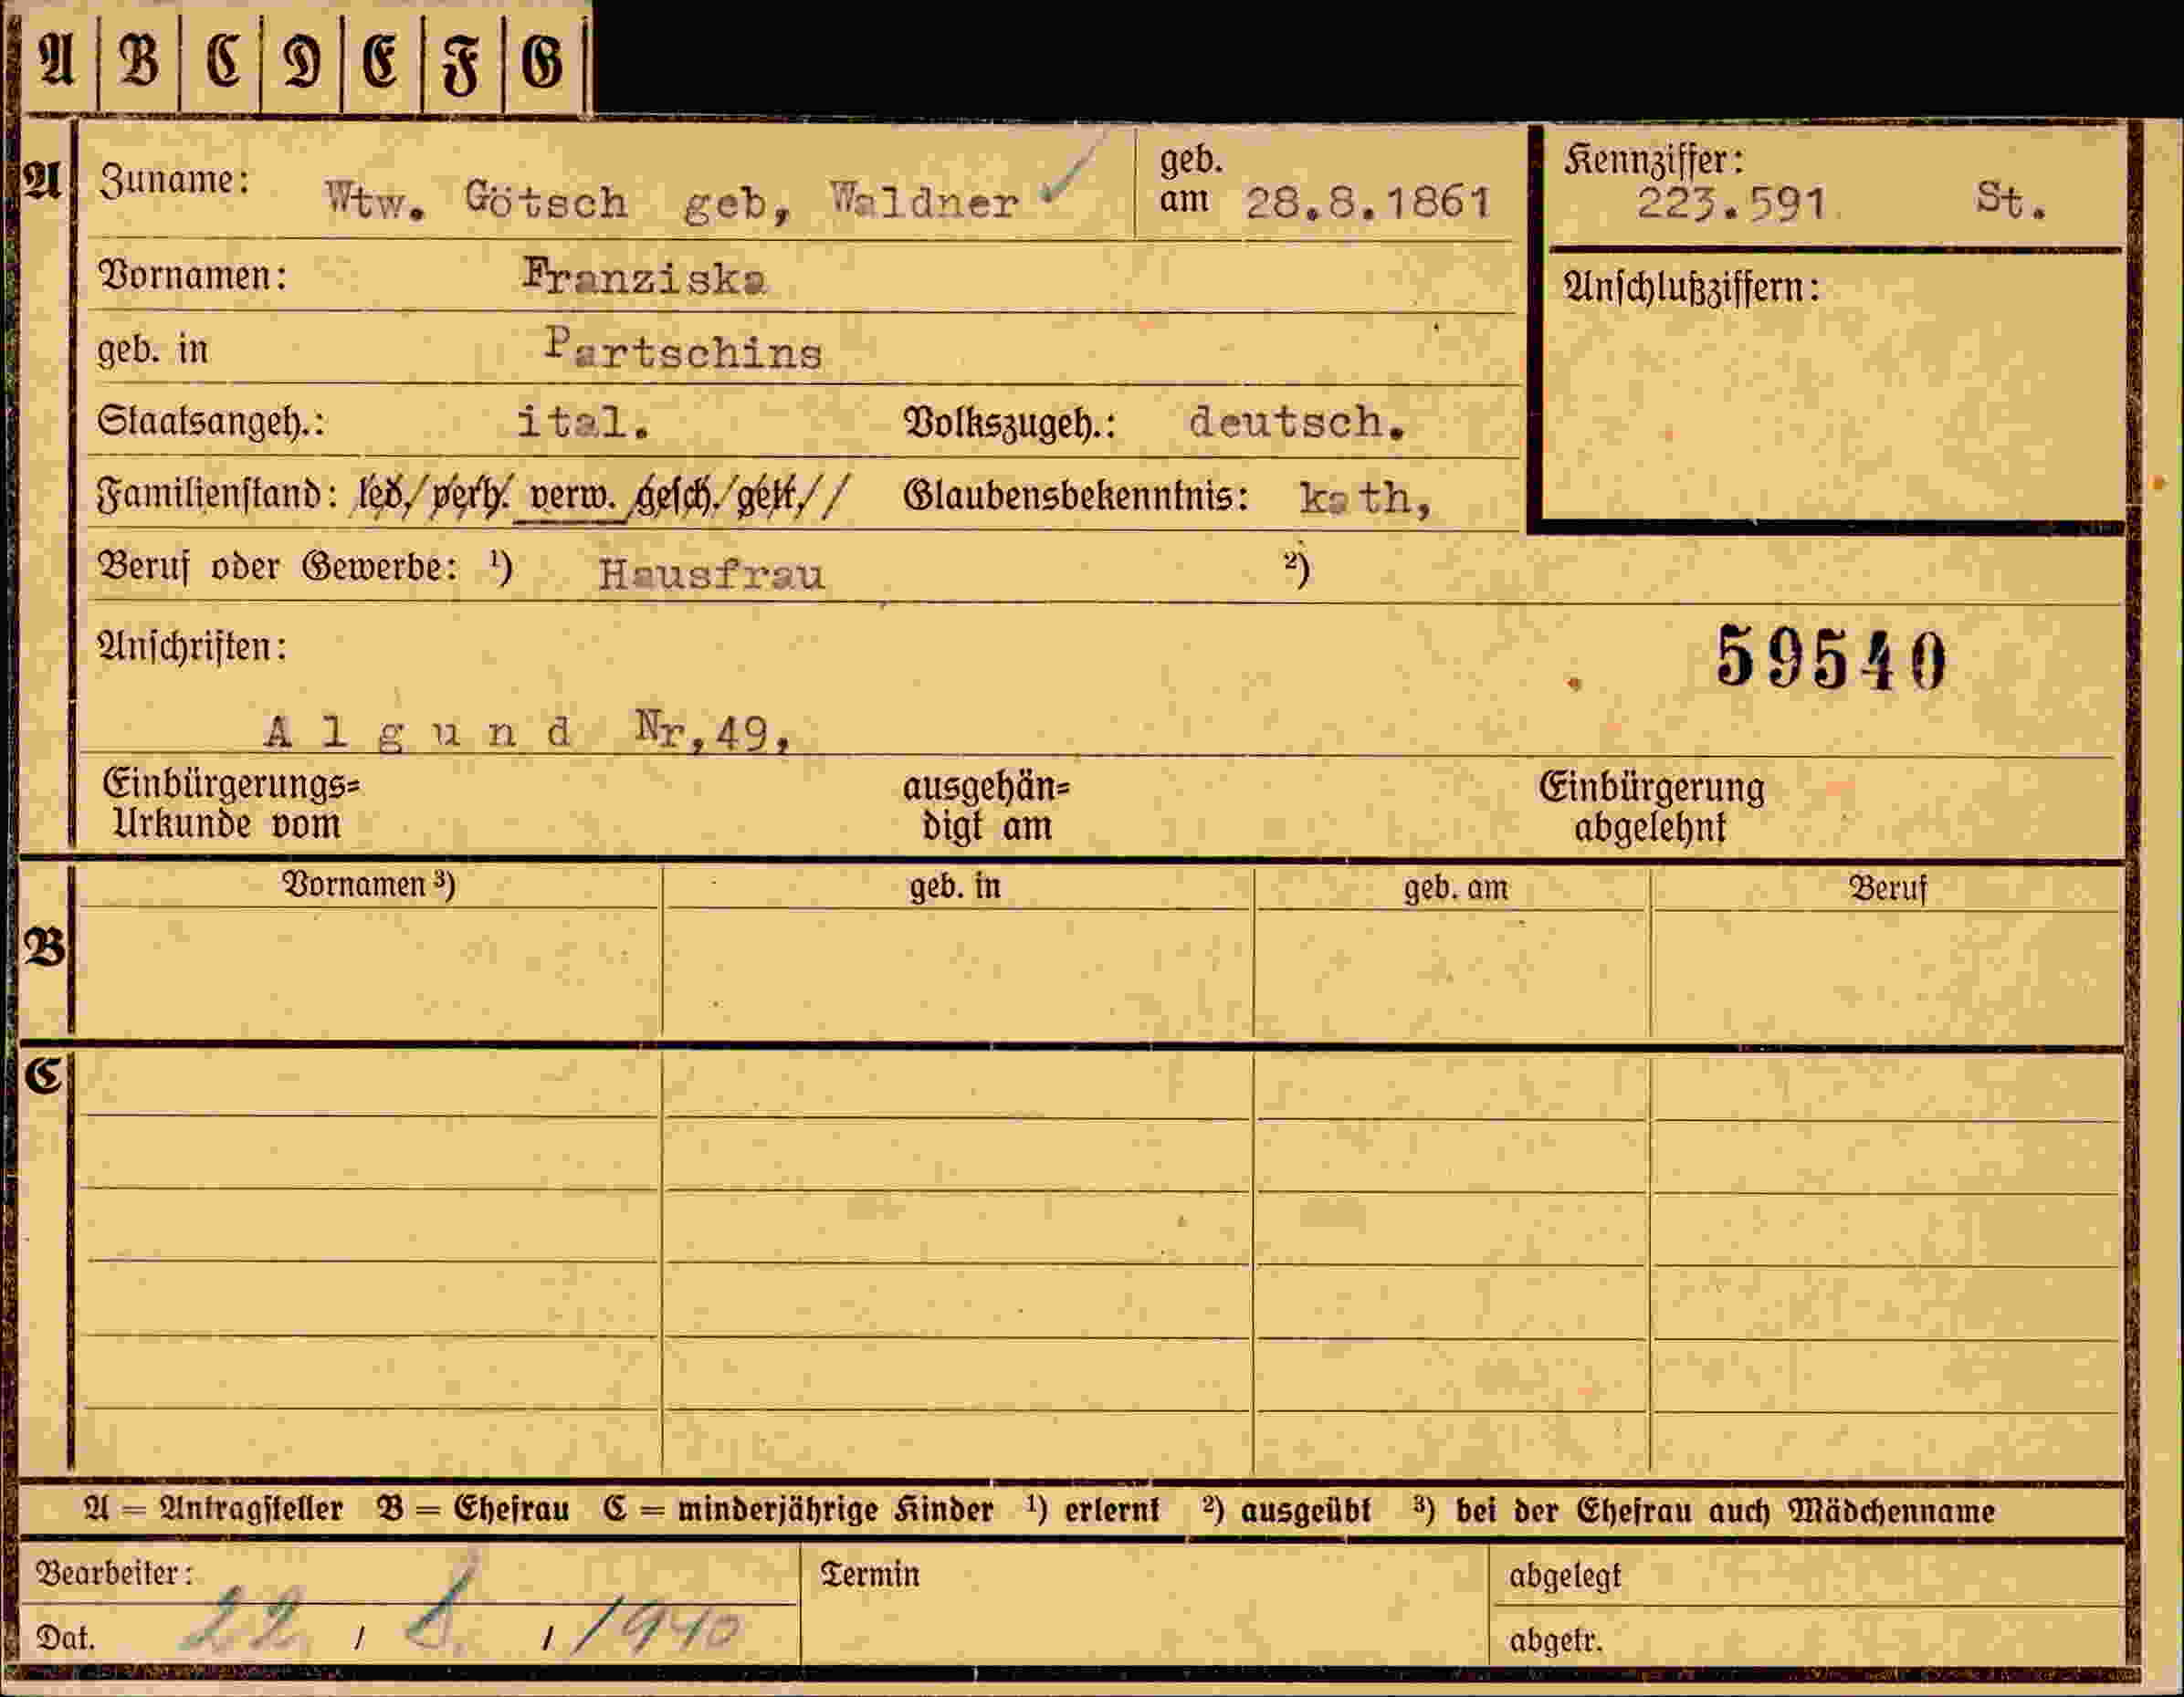 A B C D E F G
A Zuname: Wtw. Götsch geb, Waldner geb. am 28.8.1861 Kennziffer: 223.591 St.
Vornamen: Franziska Anschlußziffern:
geb. in Partschins
Staatsangeh.: ital. Volkszugeh.: deutsch.
Familienstand: led./verh. verw. gesch./getr. Glaubensbekenntnis: kath,
Beruf oder Gewerbe: ¹) Hausfrau ²)
Anschriften: 59540
Algund Nr,49,
Einbürgerungs= ausgehän= Einbürgerung
Urkunde vom digt am abgelehnt
B Vornamen ³) geb. in geb. am Beruf
C
A = Antragsteller B = Ehefrau C = minderjährige Kinder ¹) erlernt ²) ausgeübt ³) bei der Ehefrau auch Mädchenname
Bearbeiter: Termin abgelegt
Dat. 22 / 8. / 1940 abgetr.